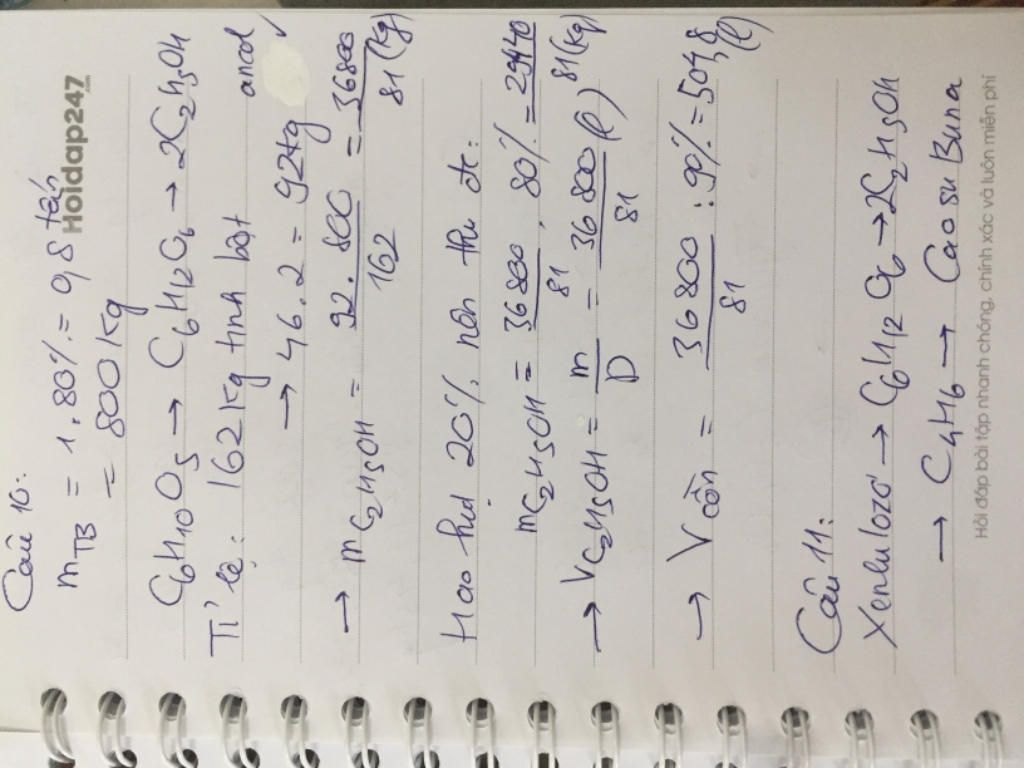 Câu 10:
Hoidap247.com
m TB = 1.80% = 0,8 tấn
= 800 kg
C6H10O5 → C6H12O6 → 2C2H5OH
Tỉ lệ: 162 kg tinh bột ancol
→ 46.2 = 92kg
→ mC2H5OH = 92.800/162 = 36800/81 (kg)
Hao hụt 20% nên thu đc:
mC2H5OH = 36800/81 . 80% = 29440/81 (kg)
→ VC2H5OH = m/D = 36800/81 (l)
→ V cồn = 36800/81 : 90% = 504,8 (l)
Câu 11:
Xenlulozơ → C6H12O6 → 2C2H5OH
→ C4H6 → Cao su Buna
Hỏi đáp bài tập nhanh chóng, chính xác và luôn miễn phí